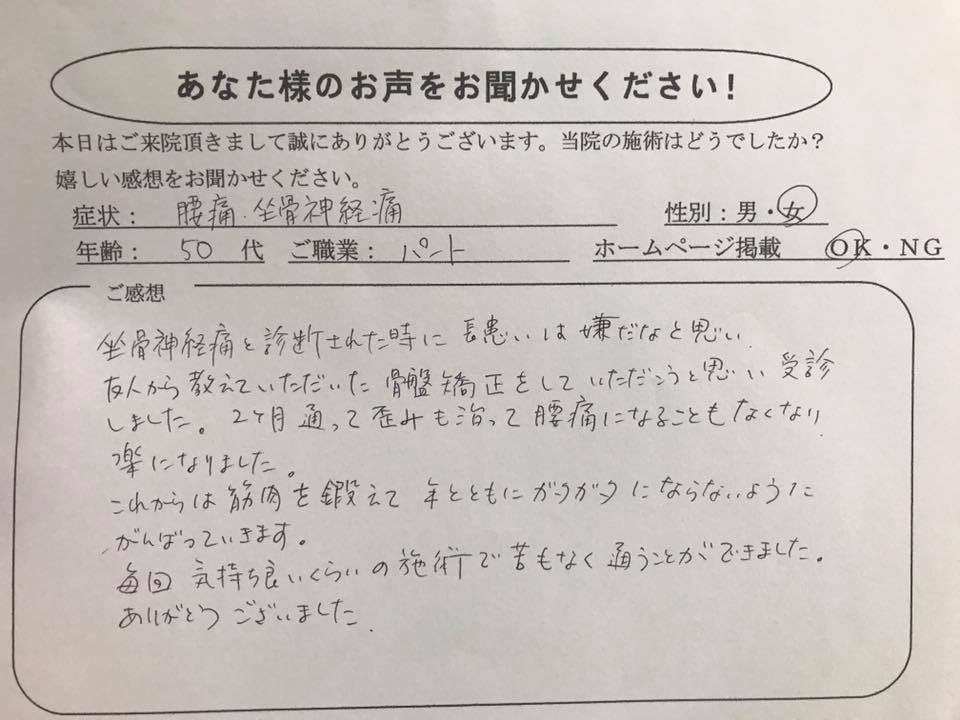 あなた様のお声をお聞かせください!
本日はご来院頂きまして誠にありがとうございます。当院の施術はどうでしたか?
嬉しい感想をお聞かせください。
症状: 腰痛・坐骨神経痛 性別:男・女
年齢: 50 代 ご職業: パート ホームページ掲載 OK・NG
ご感想
坐骨神経痛と診断された時に 長患いは嫌だなと思い、
友人から教えていただいた骨盤矯正をしていただこうと思い受診
しました。2ヶ月通って歪みも治って腰痛になることもなくなり、
楽になりました。
これからは筋肉を鍛えて 年とともにガタガタにならないように
がんばっていきます。
毎回 気持ち良いくらいの施術で苦もなく通うことができました。
ありがとうございました。